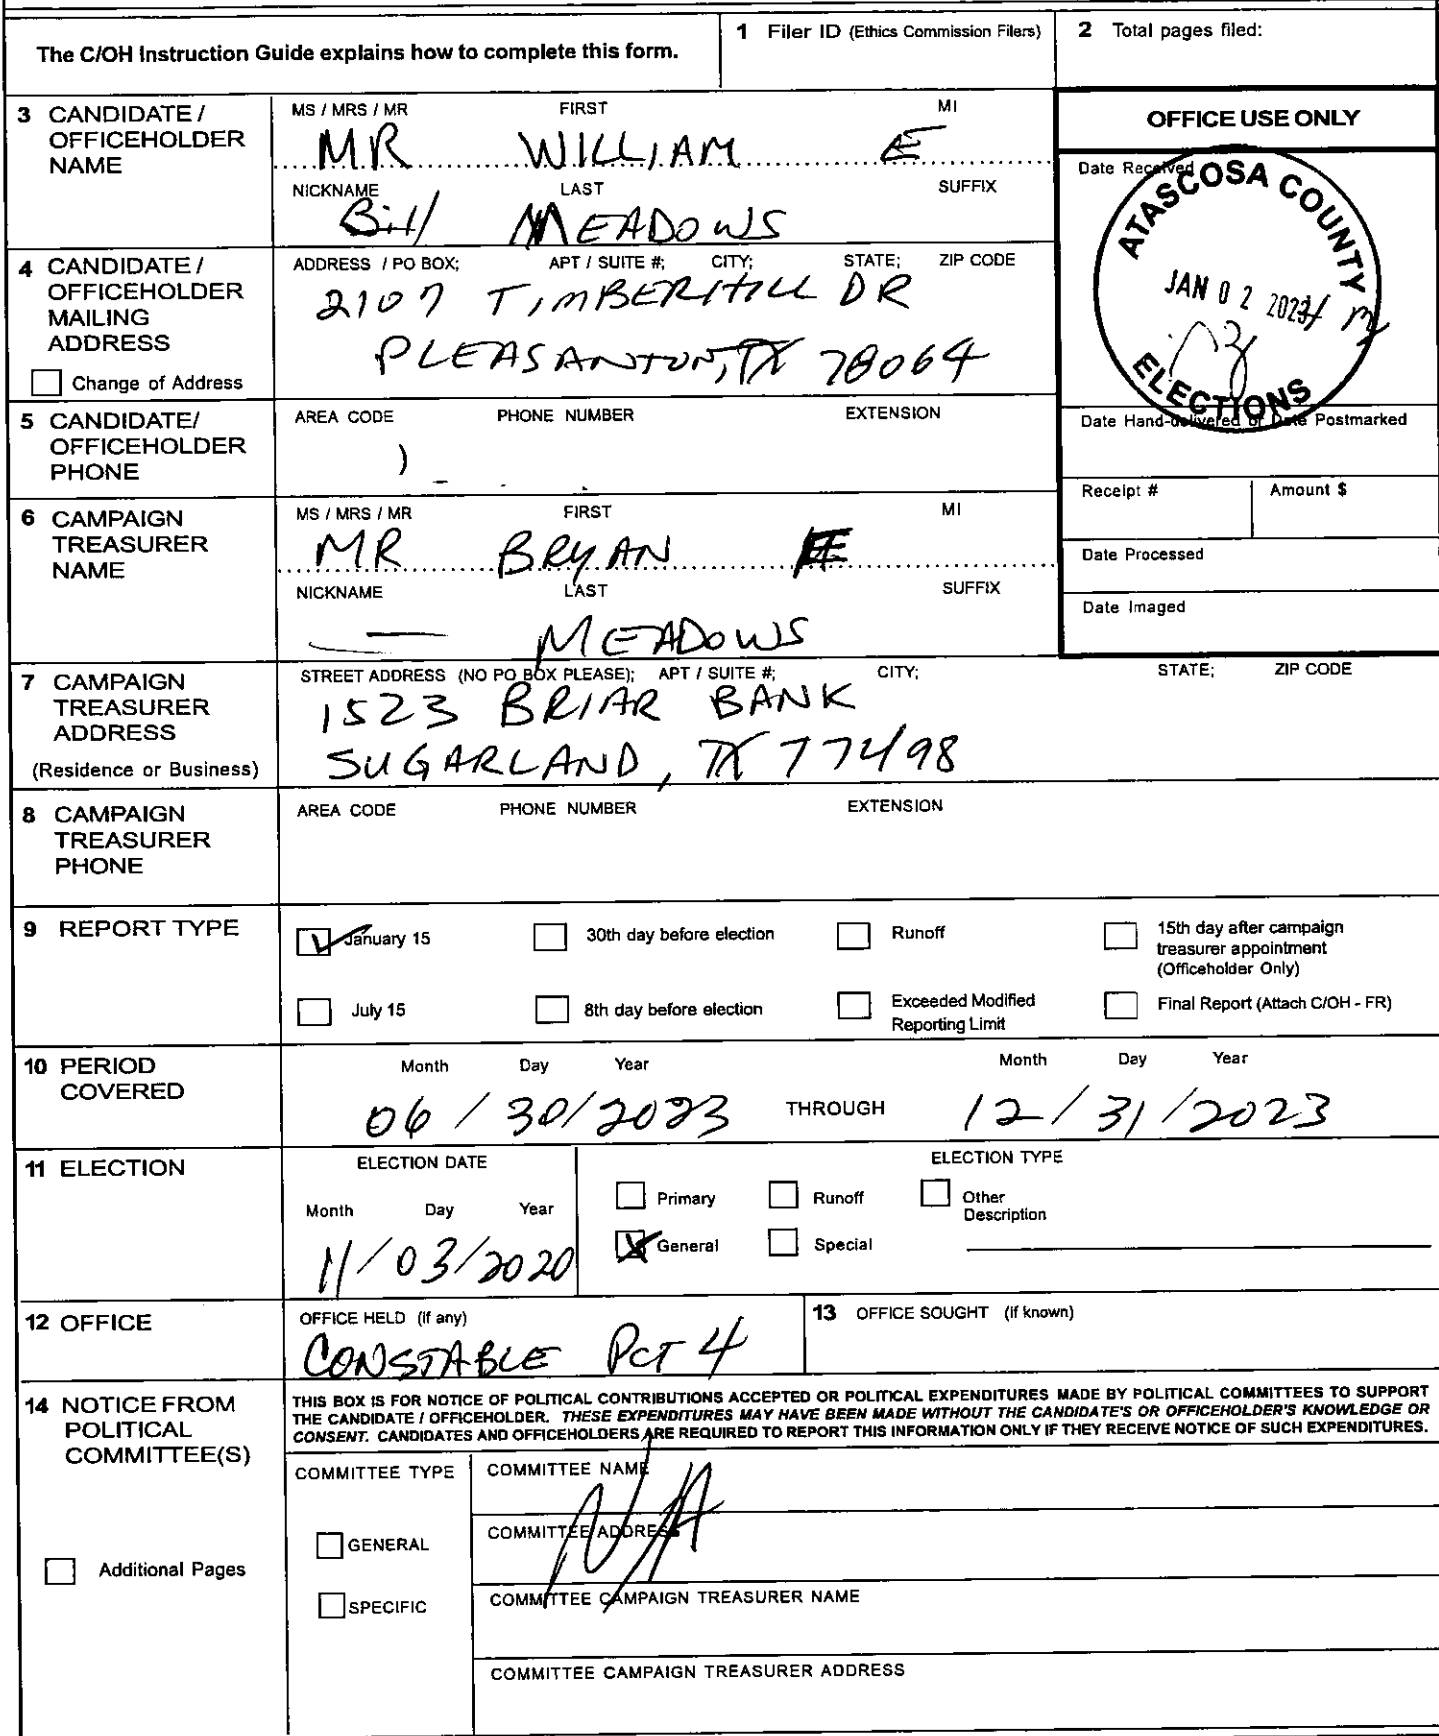 The C/OH Instruction Guide explains how to complete this form.
1 Filer ID (Ethics Commission Filers)
2 Total pages filed:
3 CANDIDATE / OFFICEHOLDER NAME
MS / MRS / MR FIRST MI
MR WILLIAM E
NICKNAME LAST SUFFIX
Bill MEADOWS
OFFICE USE ONLY
Date Received
ATASCOSA COUNTY
JAN 02 2023
ELECTIONS
4 CANDIDATE / OFFICEHOLDER MAILING ADDRESS
Change of Address
ADDRESS / PO BOX; APT / SUITE #; CITY; STATE; ZIP CODE
2107 TIMBERHILL DR
PLEASANTON, TX 78064
5 CANDIDATE/ OFFICEHOLDER PHONE
AREA CODE PHONE NUMBER EXTENSION
)
Date Hand-delivered or Date Postmarked
Receipt # Amount $
Date Processed
Date Imaged
6 CAMPAIGN TREASURER NAME
MS / MRS / MR FIRST MI
MR BRYAN E
NICKNAME LAST SUFFIX
— MEADOWS
7 CAMPAIGN TREASURER ADDRESS
(Residence or Business)
STREET ADDRESS (NO PO BOX PLEASE); APT / SUITE #; CITY; STATE; ZIP CODE
1523 BRIAR BANK
SUGARLAND, TX 77498
8 CAMPAIGN TREASURER PHONE
AREA CODE PHONE NUMBER EXTENSION
9 REPORT TYPE
January 15 30th day before election Runoff 15th day after campaign treasurer appointment (Officeholder Only)
July 15 8th day before election Exceeded Modified Reporting Limit Final Report (Attach C/OH - FR)
10 PERIOD COVERED
Month Day Year Month Day Year
06 / 30 / 2023 THROUGH 12 / 31 / 2023
11 ELECTION
ELECTION DATE
Month Day Year
11/03/2020
ELECTION TYPE
Primary Runoff Other Description
General Special
12 OFFICE
OFFICE HELD (if any)
CONSTABLE PCT 4
13 OFFICE SOUGHT (if known)
14 NOTICE FROM POLITICAL COMMITTEE(S)
Additional Pages
THIS BOX IS FOR NOTICE OF POLITICAL CONTRIBUTIONS ACCEPTED OR POLITICAL EXPENDITURES MADE BY POLITICAL COMMITTEES TO SUPPORT
THE CANDIDATE / OFFICEHOLDER. THESE EXPENDITURES MAY HAVE BEEN MADE WITHOUT THE CANDIDATE'S OR OFFICEHOLDER'S KNOWLEDGE OR
CONSENT. CANDIDATES AND OFFICEHOLDERS ARE REQUIRED TO REPORT THIS INFORMATION ONLY IF THEY RECEIVE NOTICE OF SUCH EXPENDITURES.
COMMITTEE TYPE
GENERAL
SPECIFIC
COMMITTEE NAME
N/A
COMMITTEE ADDRESS
COMMITTEE CAMPAIGN TREASURER NAME
COMMITTEE CAMPAIGN TREASURER ADDRESS